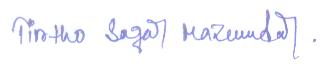 Tirtho Sagar Mazumdar.